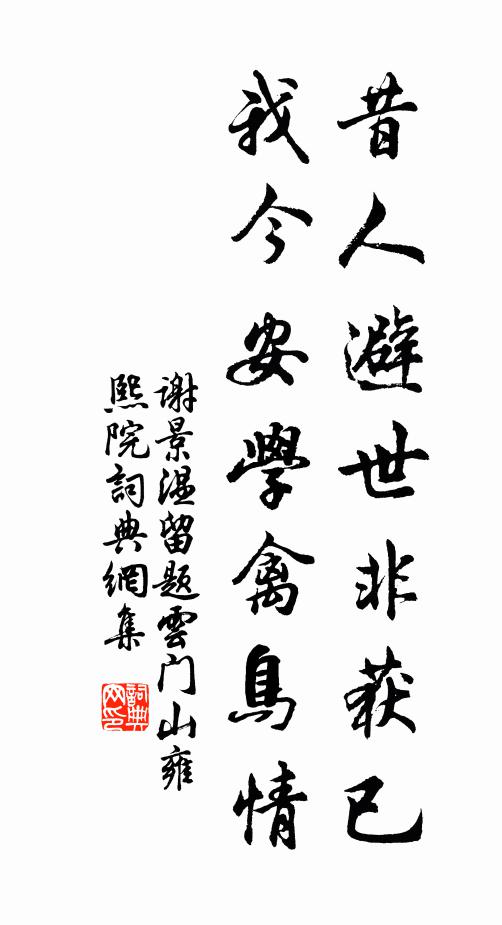 昔人避世非获已
我今安學禽鳥情
谢景温留题雲门山雍
熙院詞典網集
詞典網印